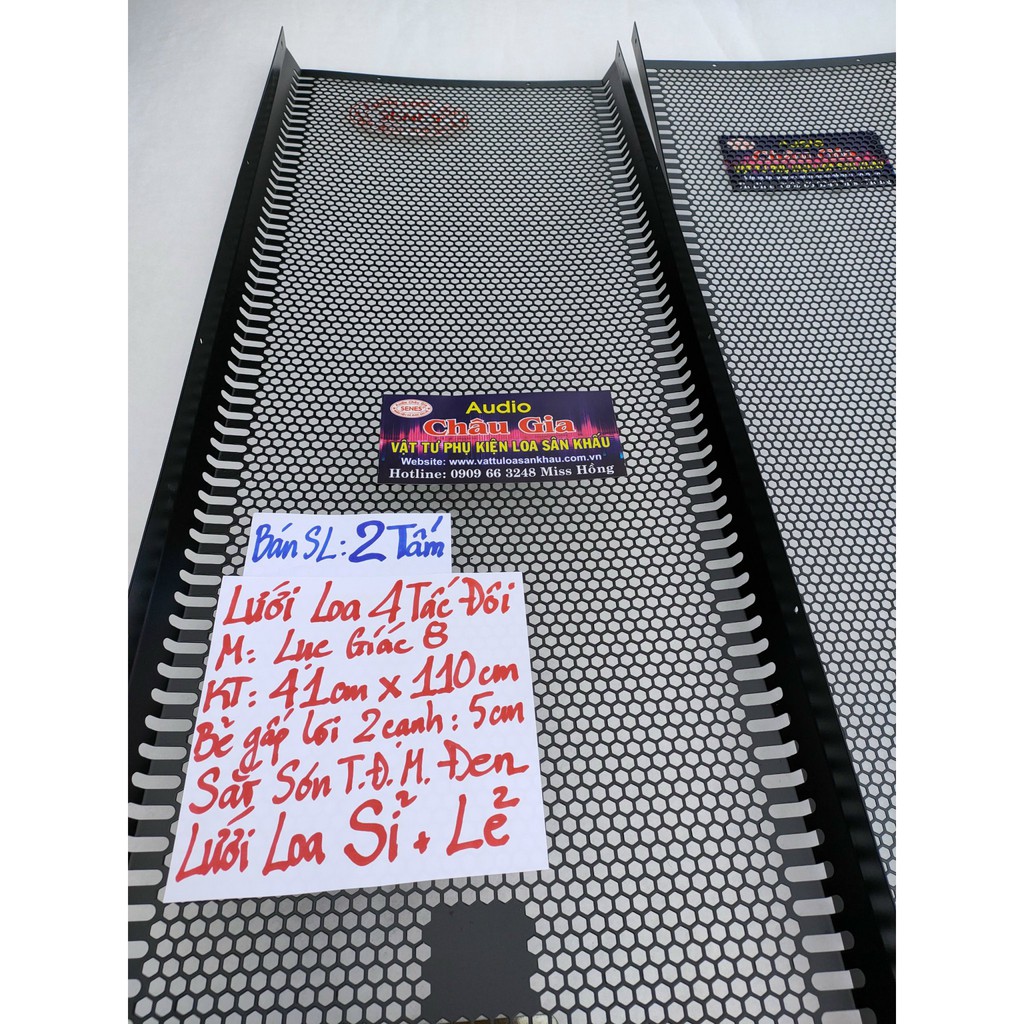 SENES
Audio
Châu Gia
VẬT TƯ PHỤ KIỆN LOA SÂN KHẤU
Website: www.vattuloasankhau.com.vn
Hotline: 0909 66 3248 Miss Hồng
Bán SL: 2 Tấm
Lưới Loa 4 Tấc Đôi
M: Lục Giác 8
KT: 41cm x 110cm
Bẻ gấp lồi 2 cạnh: 5cm
Sắt Sơn T.Đ.M. Đen
Lưới Loa Sỉ + Lẻ
Audio